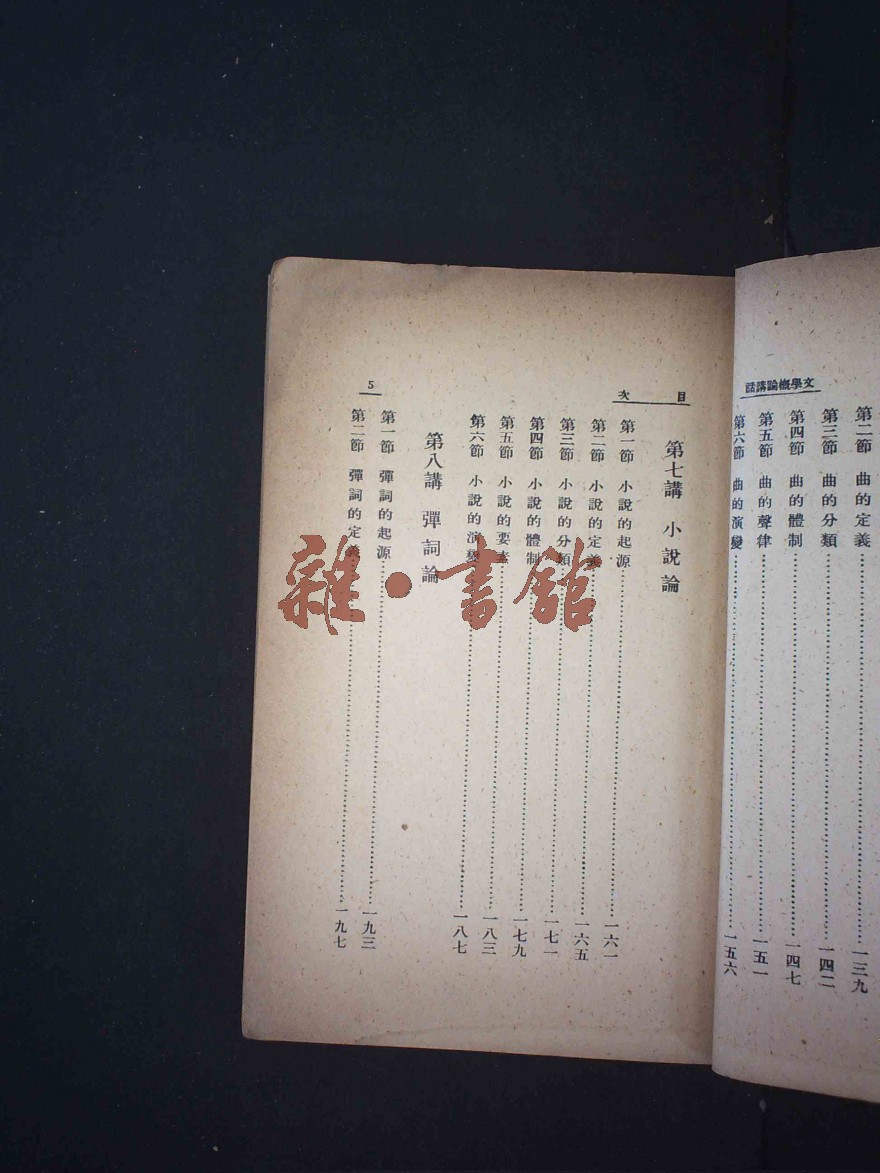 文學概論講話
第二節 曲的定義……一三九
第三節 曲的分類……一四二
第四節 曲的體制……一四七
第五節 曲的聲律……一五一
第六節 曲的演變……一五六
目次
第七講 小說論
第一節 小說的起源……一六一
第二節 小說的定義……一六五
第三節 小說的分類……一七一
第四節 小說的體制……一七九
第五節 小說的要素……一八三
第六節 小說的演變……一八七
第八講 彈詞論
第一節 彈詞的起源……一九三
第二節 彈詞的定義……一九七
5
雜·書館